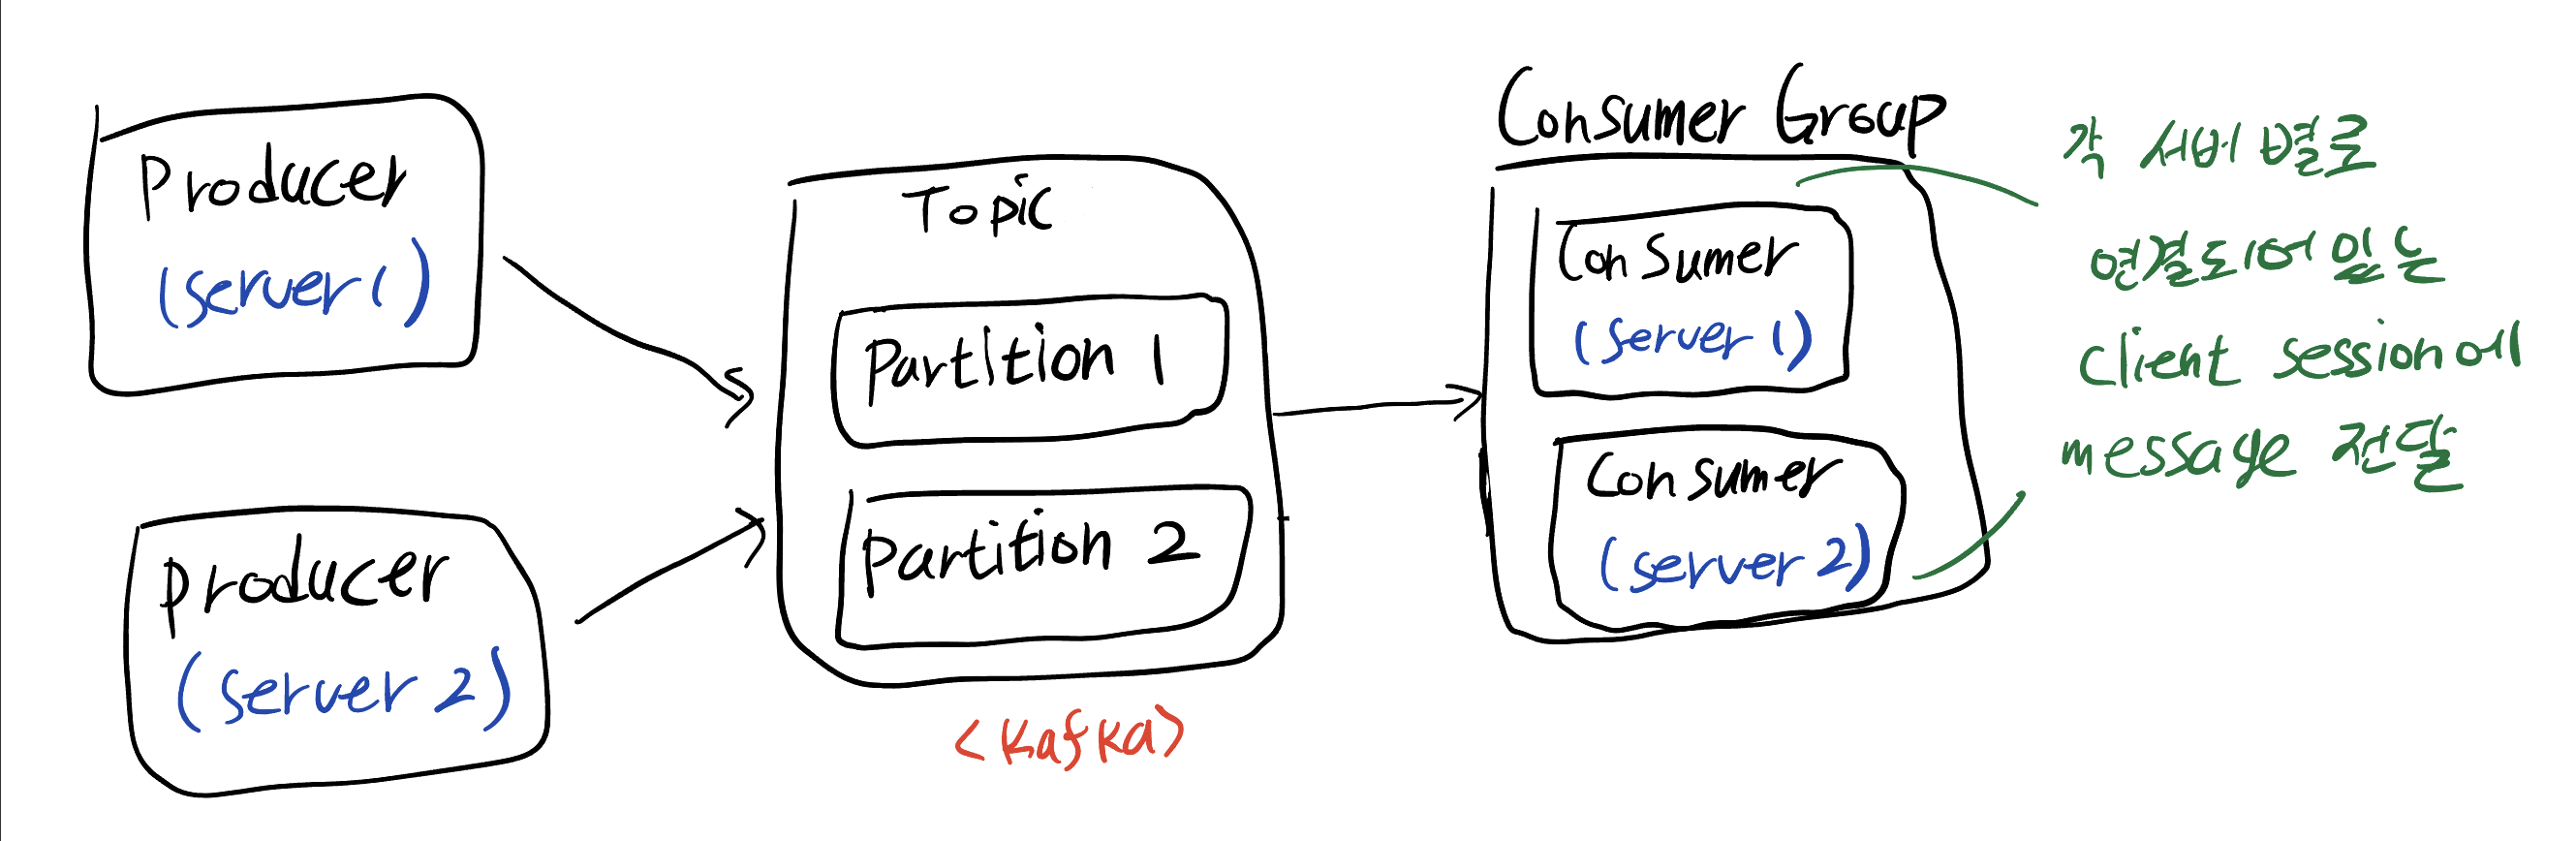 Producer
(server 1)
Producer
(server 2)
Topic
Partition 1
Partition 2
<Kafka>
Consumer Group
Consumer
(server 1)
Consumer
(server 2)
각 서버 별로
연결되어 있는
client session에
message 전달